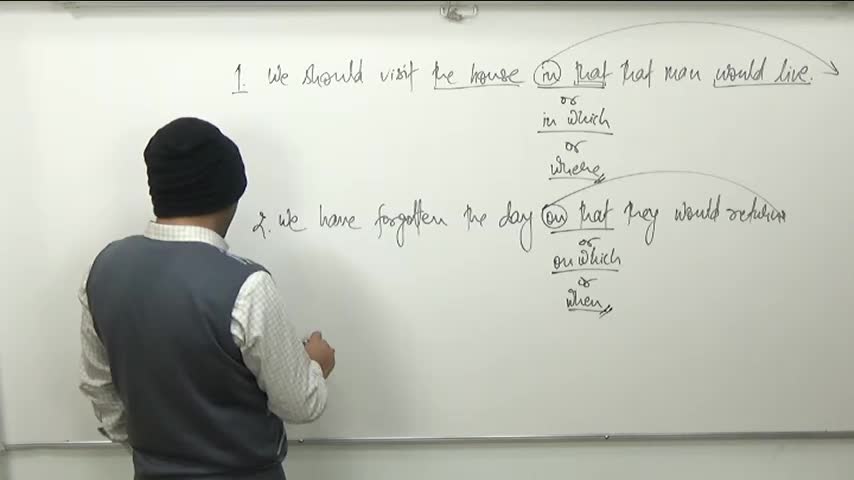 1. We should visit the house in that that man would live.
or
in which
or
where
2. We have forgotten the day on that they would return
or
on which
or
when